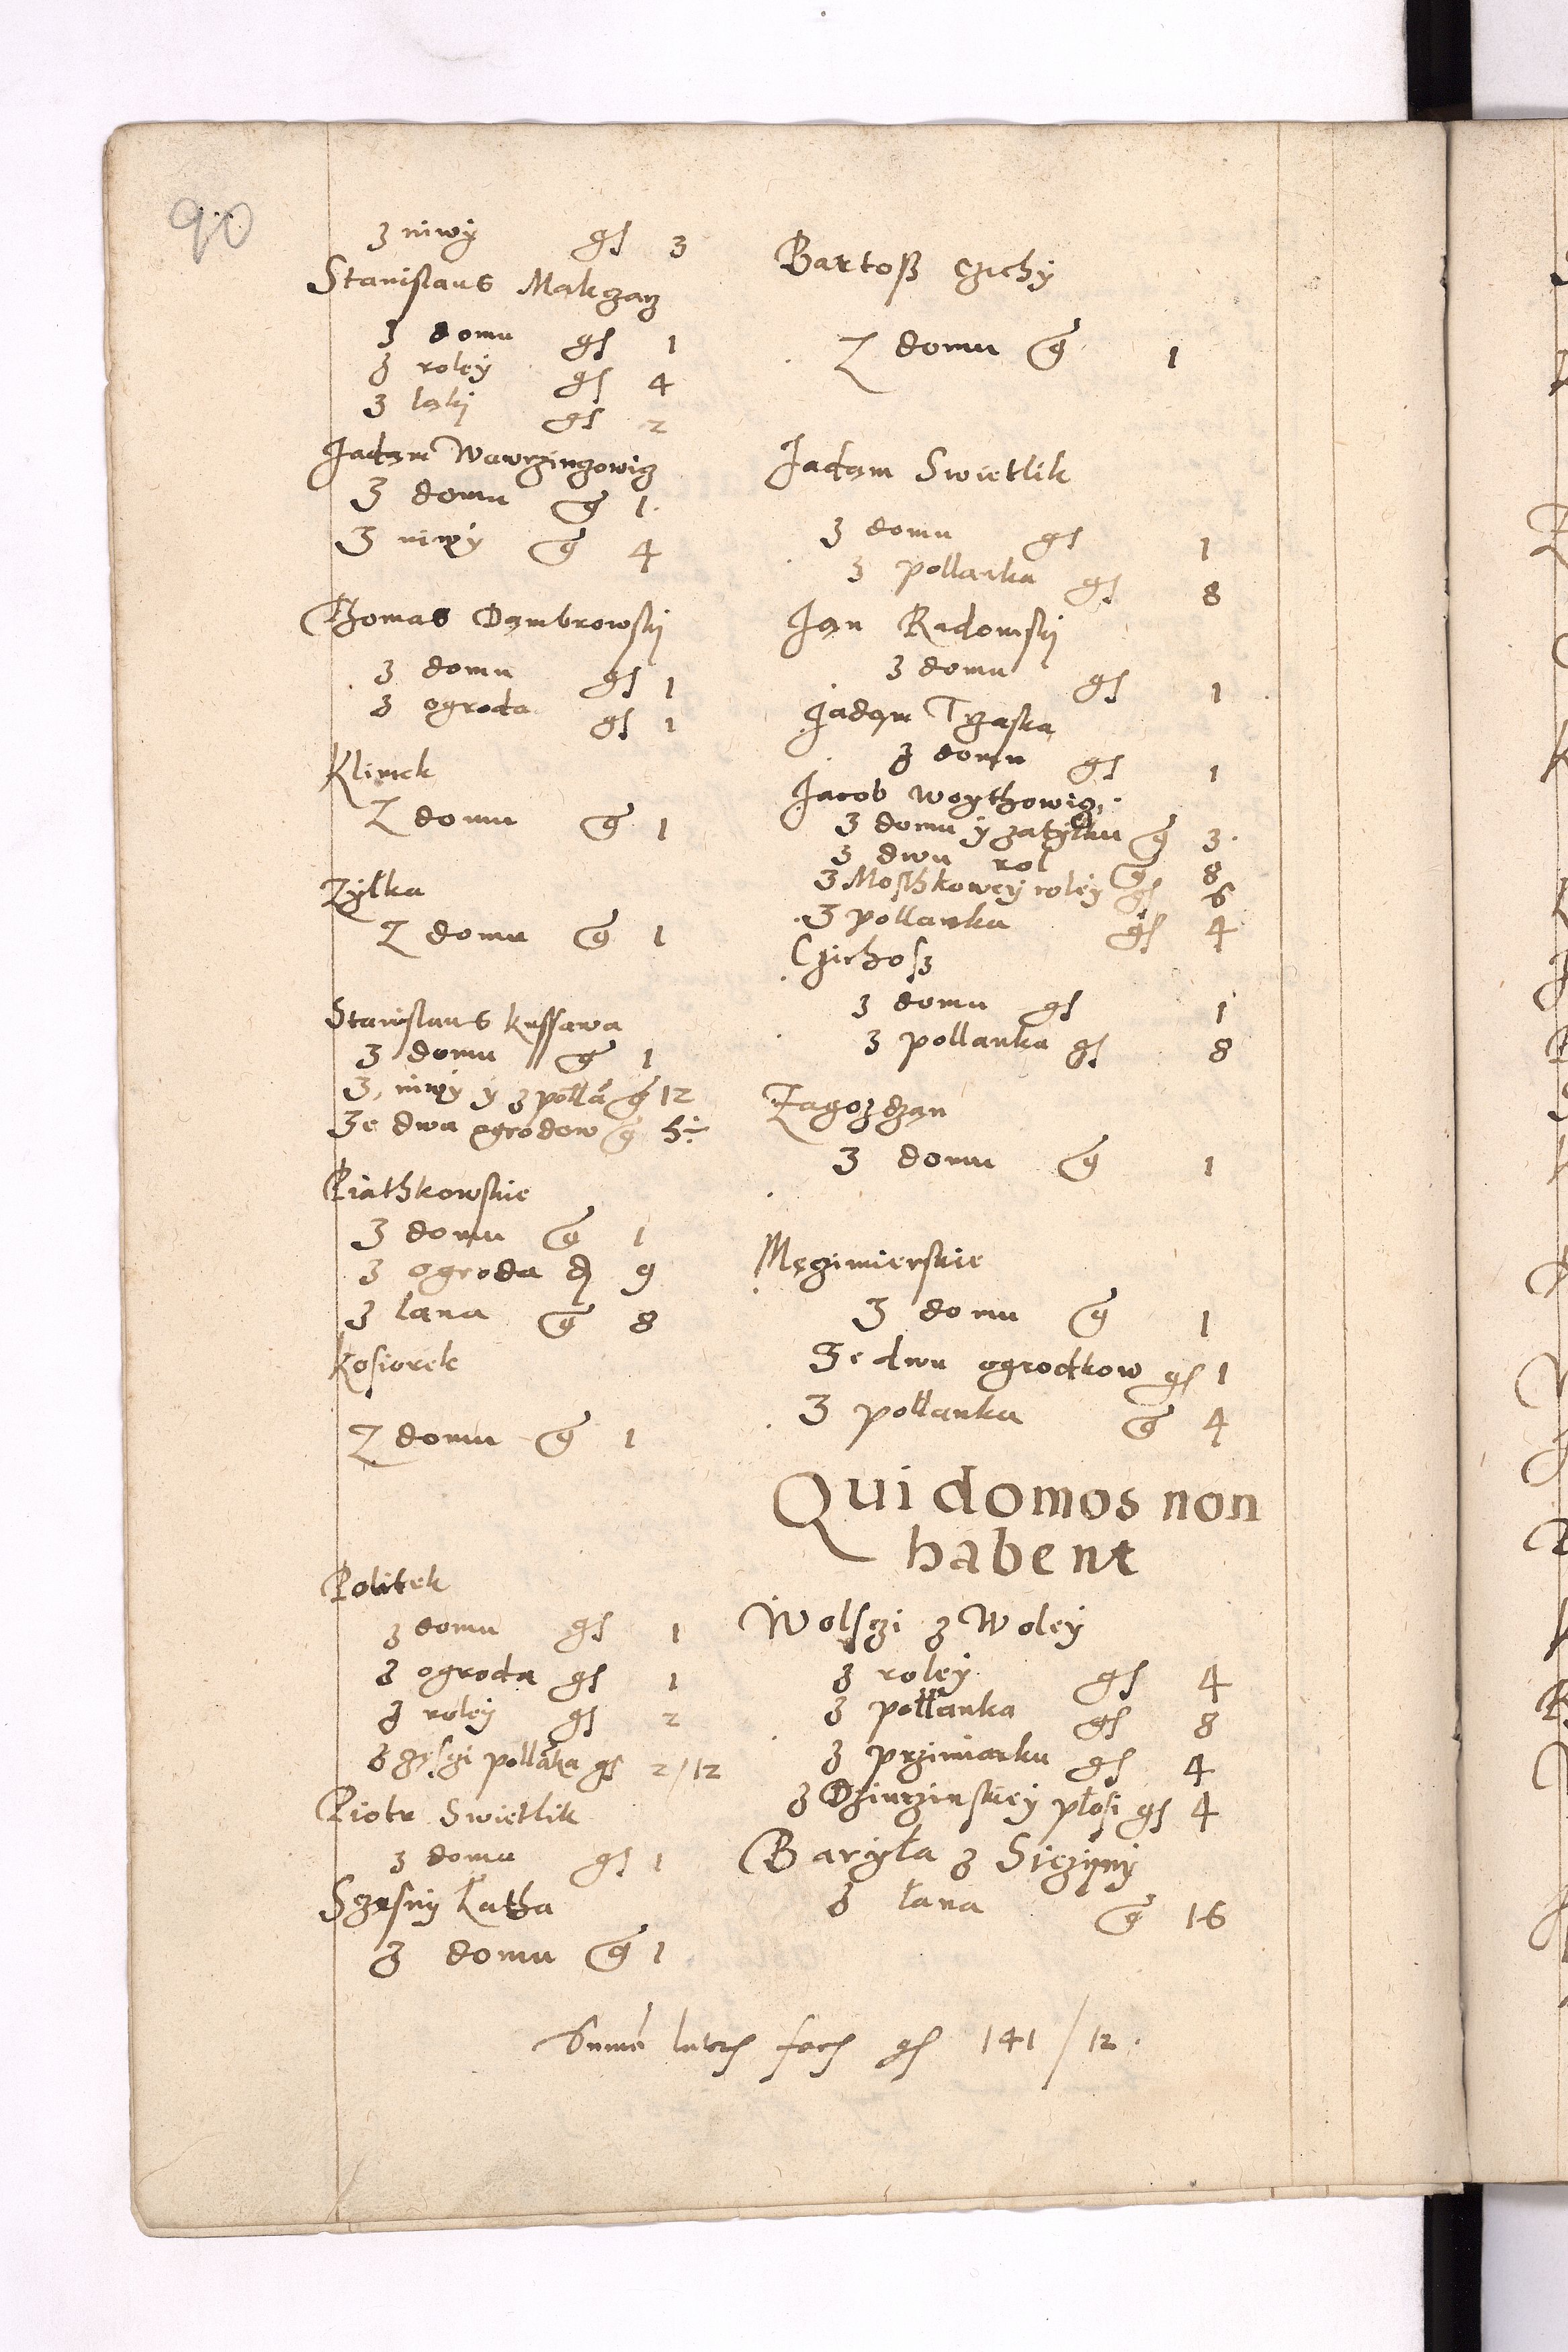 90
z niwy gs 3
Stanislaus Makczaz
z domu gs 1
z roley gs 4
z laki gs 2
Jadam Wawrzinczowicz
Z domu g 1.
Z niwy g 4
Thomas Dambrowskj
z domu gs 1
z ogroda gs 1
Klimek
Z domu g 1
Zylka
Z domu g 1
Stanislaus kussawa
Z domu g 1
Z niwy y z polla g 12
Ze dwu ogrodow g
Piathkowskie
Z domu g 1
z ogroda d 9
z lana g 8
kosiorek
Z domu g 1
Politek
z domu gs 1
z ogroda gs 1
z roley gs 2
z pollaka gs 2/12
Piotr Swietlik
z domu gs 1
Szczesny Latha
z domu g 1
Bartosz czichy
Z domu g 1
Jadam Swietlik
z domu gs 1
z pollanka gs 8
Jan Radomskj
z domu gs 1
Jadam Trzaska
z domu gs 1
Jacob woythowicz
z domu y zatylku g 3.
z dwu rol g 8
z Moshkowey roley gs 6
z pollanka gs 4
Czichosz
z domu gs 1
z pollanka gs 8
Zagozdzan
Z domu g 1
Męzimierskie
Z domu g 1
Ze dwu ogrodkow gs 1
Z pollanka g 4
Qui domos non
habent
Wolsczi z Woley
z roley gs 4
z pollanka gs 8
z przimiarku gs 4
z Dziurzinskiey plosi gs 4
Baryła z Sieczipny
z łana g 16
Summa lateris facit gs 141/12.